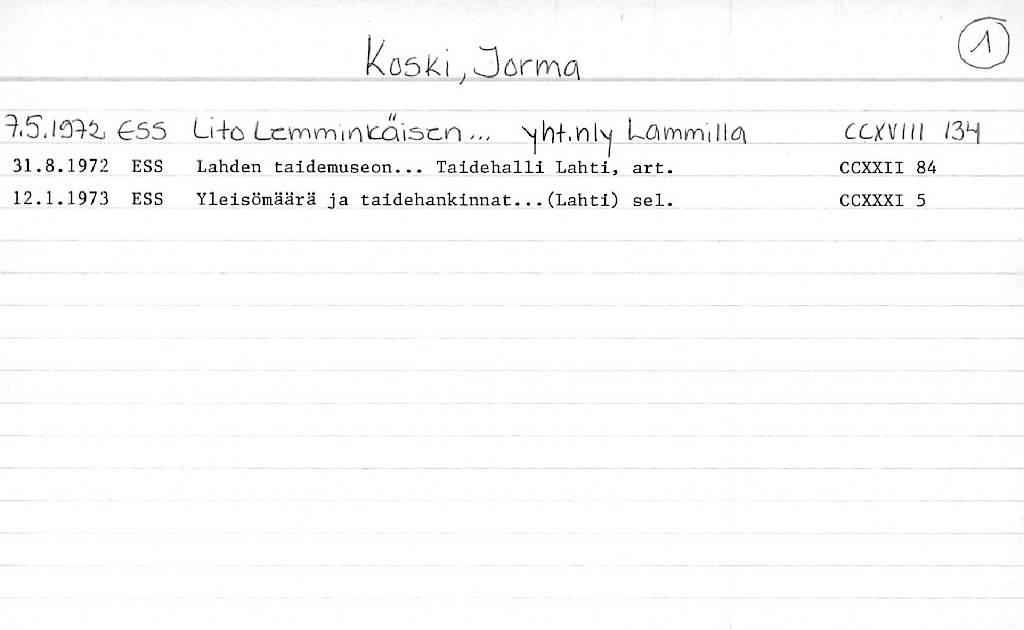 Koski, Jorma
1
7.5.1972 ESS Lito Lemminkäisen... yht.nly Lammilla CCXVIII 134
31.8.1972 ESS Lahden taidemuseon... Taidehalli Lahti, art. CCXXII 84
12.1.1973 ESS Yleisömäärä ja taidehankinnat...(Lahti) sel. CCXXXI 5